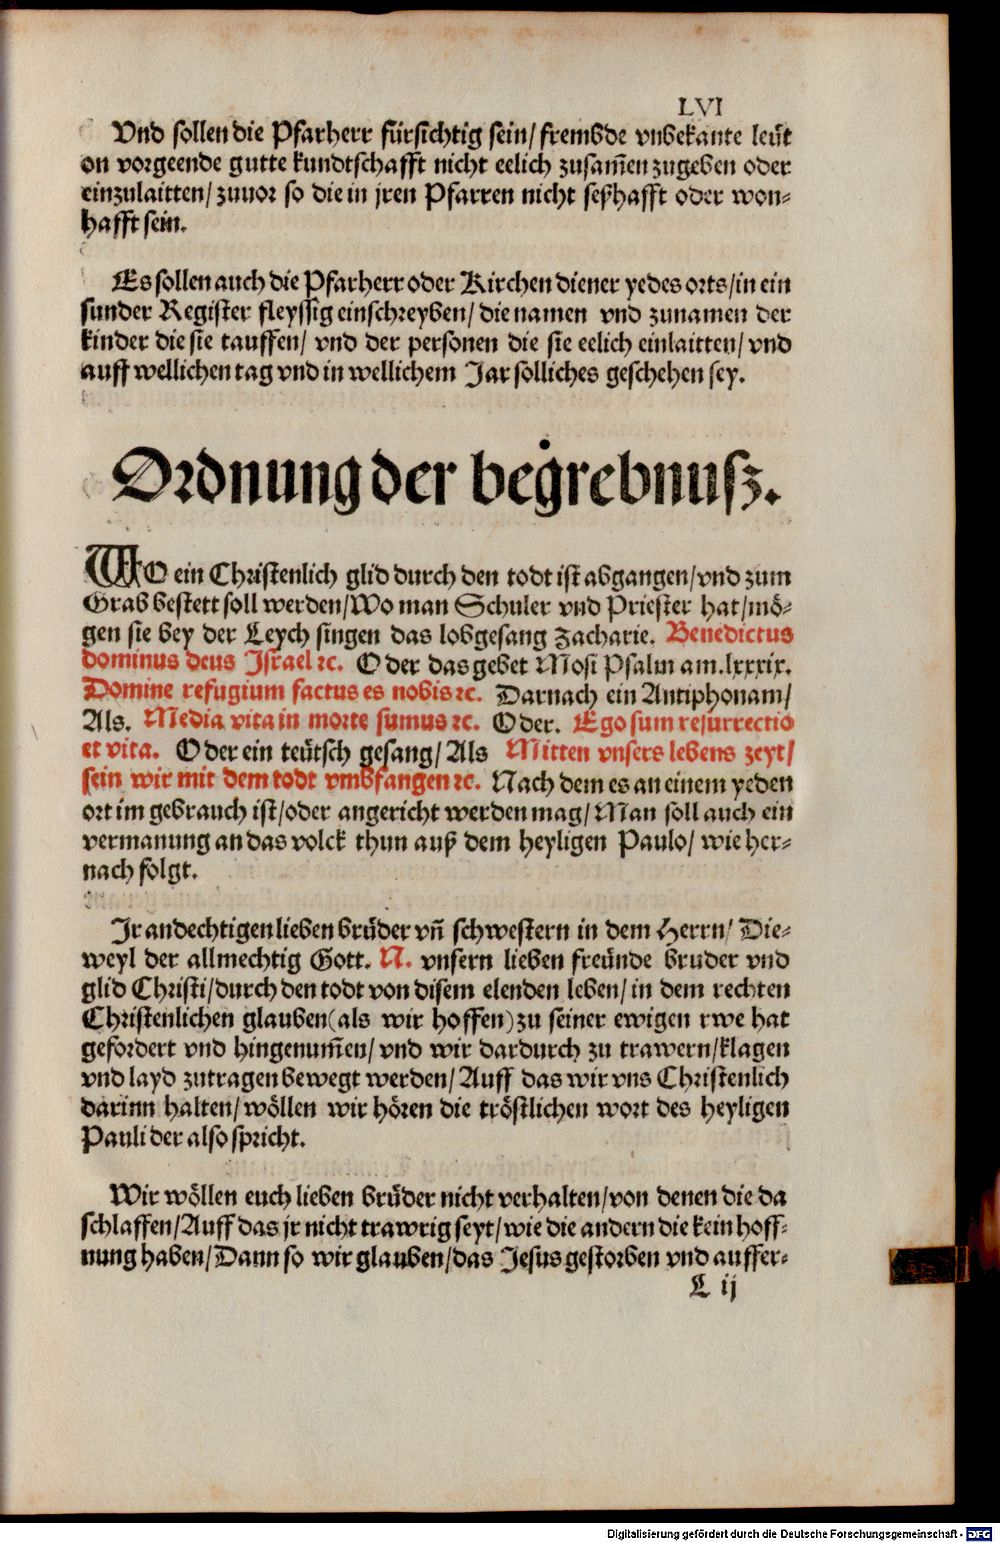 LVI
Vnd sollen die Pfarherr fürsichtig sein/ frembde vnbekante leüt
on vorgeende gutte kundtschafft nicht eelich zusam̃en zugeben oder
einzulaitten/ zuuor so die in jren Pfarren nicht seßhafft oder won⸗
hafft sein.
Es sollen auch die Pfarherr oder Kirchen diener yedes orts/ in ein
sunder Register fleyssig einschreyben/ die namen vnd zunamen der
kinder die sie tauffen/ vnd der personen die sie eelich einlaitten/ vnd
auff wellichen tag vnd in wellichem Jar solliches geschehen sey.
Ordnung der begrebnusz.
WO ein Christenlich glid durch den todt ist abgangen/ vnd zum
Grab bestett soll werden/ Wo man Schuler vnd Priester hat/ mö⸗
gen sie bey der Leych singen das lobgesang Zacharie. Benedictus
dominus deus Israel ꝛc. Oder das gebet Mosi Psalm am. lxxxix.
Domine refugium factus es nobis ꝛc. Darnach ein Antiphonam/
Als. Media vita in morte sumus ꝛc. Oder. Ego sum resurrectio
et vita. Oder ein teütsch gesang/ Als Mitten vnsers lebens zeyt/
sein wir mit dem todt vmbfangen ꝛc. Nach dem es an einem yeden
ort im gebrauch ist/ oder angericht werden mag/ Man soll auch ein
vermanung an das volck thun auß dem heyligen Paulo/ wie her⸗
nach folgt.
Jr andechtigen lieben brüder vñ schwestern in dem Herrn/ Die⸗
weyl der allmechtig Gott. N. vnsern lieben freünde bruder vnd
glid Christi/ durch den todt von disem elenden leben/ in dem rechten
Christenlichen glauben (als wir hoffen) zu seiner ewigen rwe hat
gefordert vnd hingenum̃en/ vnd wir dardurch zu trawern/ klagen
vnd layd zutragen bewegt werden/ Auff das wir vns Christenlich
darinn halten/ wöllen wir hören die tröstlichen wort des heyligen
Pauli der also spricht.
Wir wöllen euch lieben brüder nicht verhalten/ von denen die da
schlaffen/ Auff das jr nicht trawrig seyt/ wie die andern die kein hoff⸗
nung haben/ Dann so wir glauben/ das Jesus gestorben vnd auffer⸗
L ij
Digitalisierung gefördert durch die Deutsche Forschungsgemeinschaft - DFG